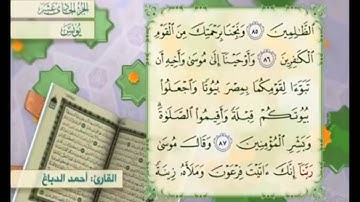 الجزء الحادي عشر
يونس
ٱلظَّٰلِمِينَ ٨٥ وَنَجِّنَا بِرَحۡمَتِكَ مِنَ ٱلۡقَوۡمِ
ٱلۡكَٰفِرِينَ ٨٦ وَأَوۡحَيۡنَآ إِلَىٰ مُوسَىٰ وَأَخِيهِ أَن
تَبَوَّءَا لِقَوۡمِكُمَا بِمِصۡرَ بُيُوتٗا وَٱجۡعَلُواْ
بُيُوتَكُمۡ قِبۡلَةٗ وَأَقِيمُواْ ٱلصَّلَوٰةَۗ
وَبَشِّرِ ٱلۡمُؤۡمِنِينَ ٨٧ وَقَالَ مُوسَىٰ
رَبَّنَآ إِنَّكَ ءَاتَيۡتَ فِرۡعَوۡنَ وَمَلَأَهُۥ زِينَةٗ
القارئ: أحمد الدباغ